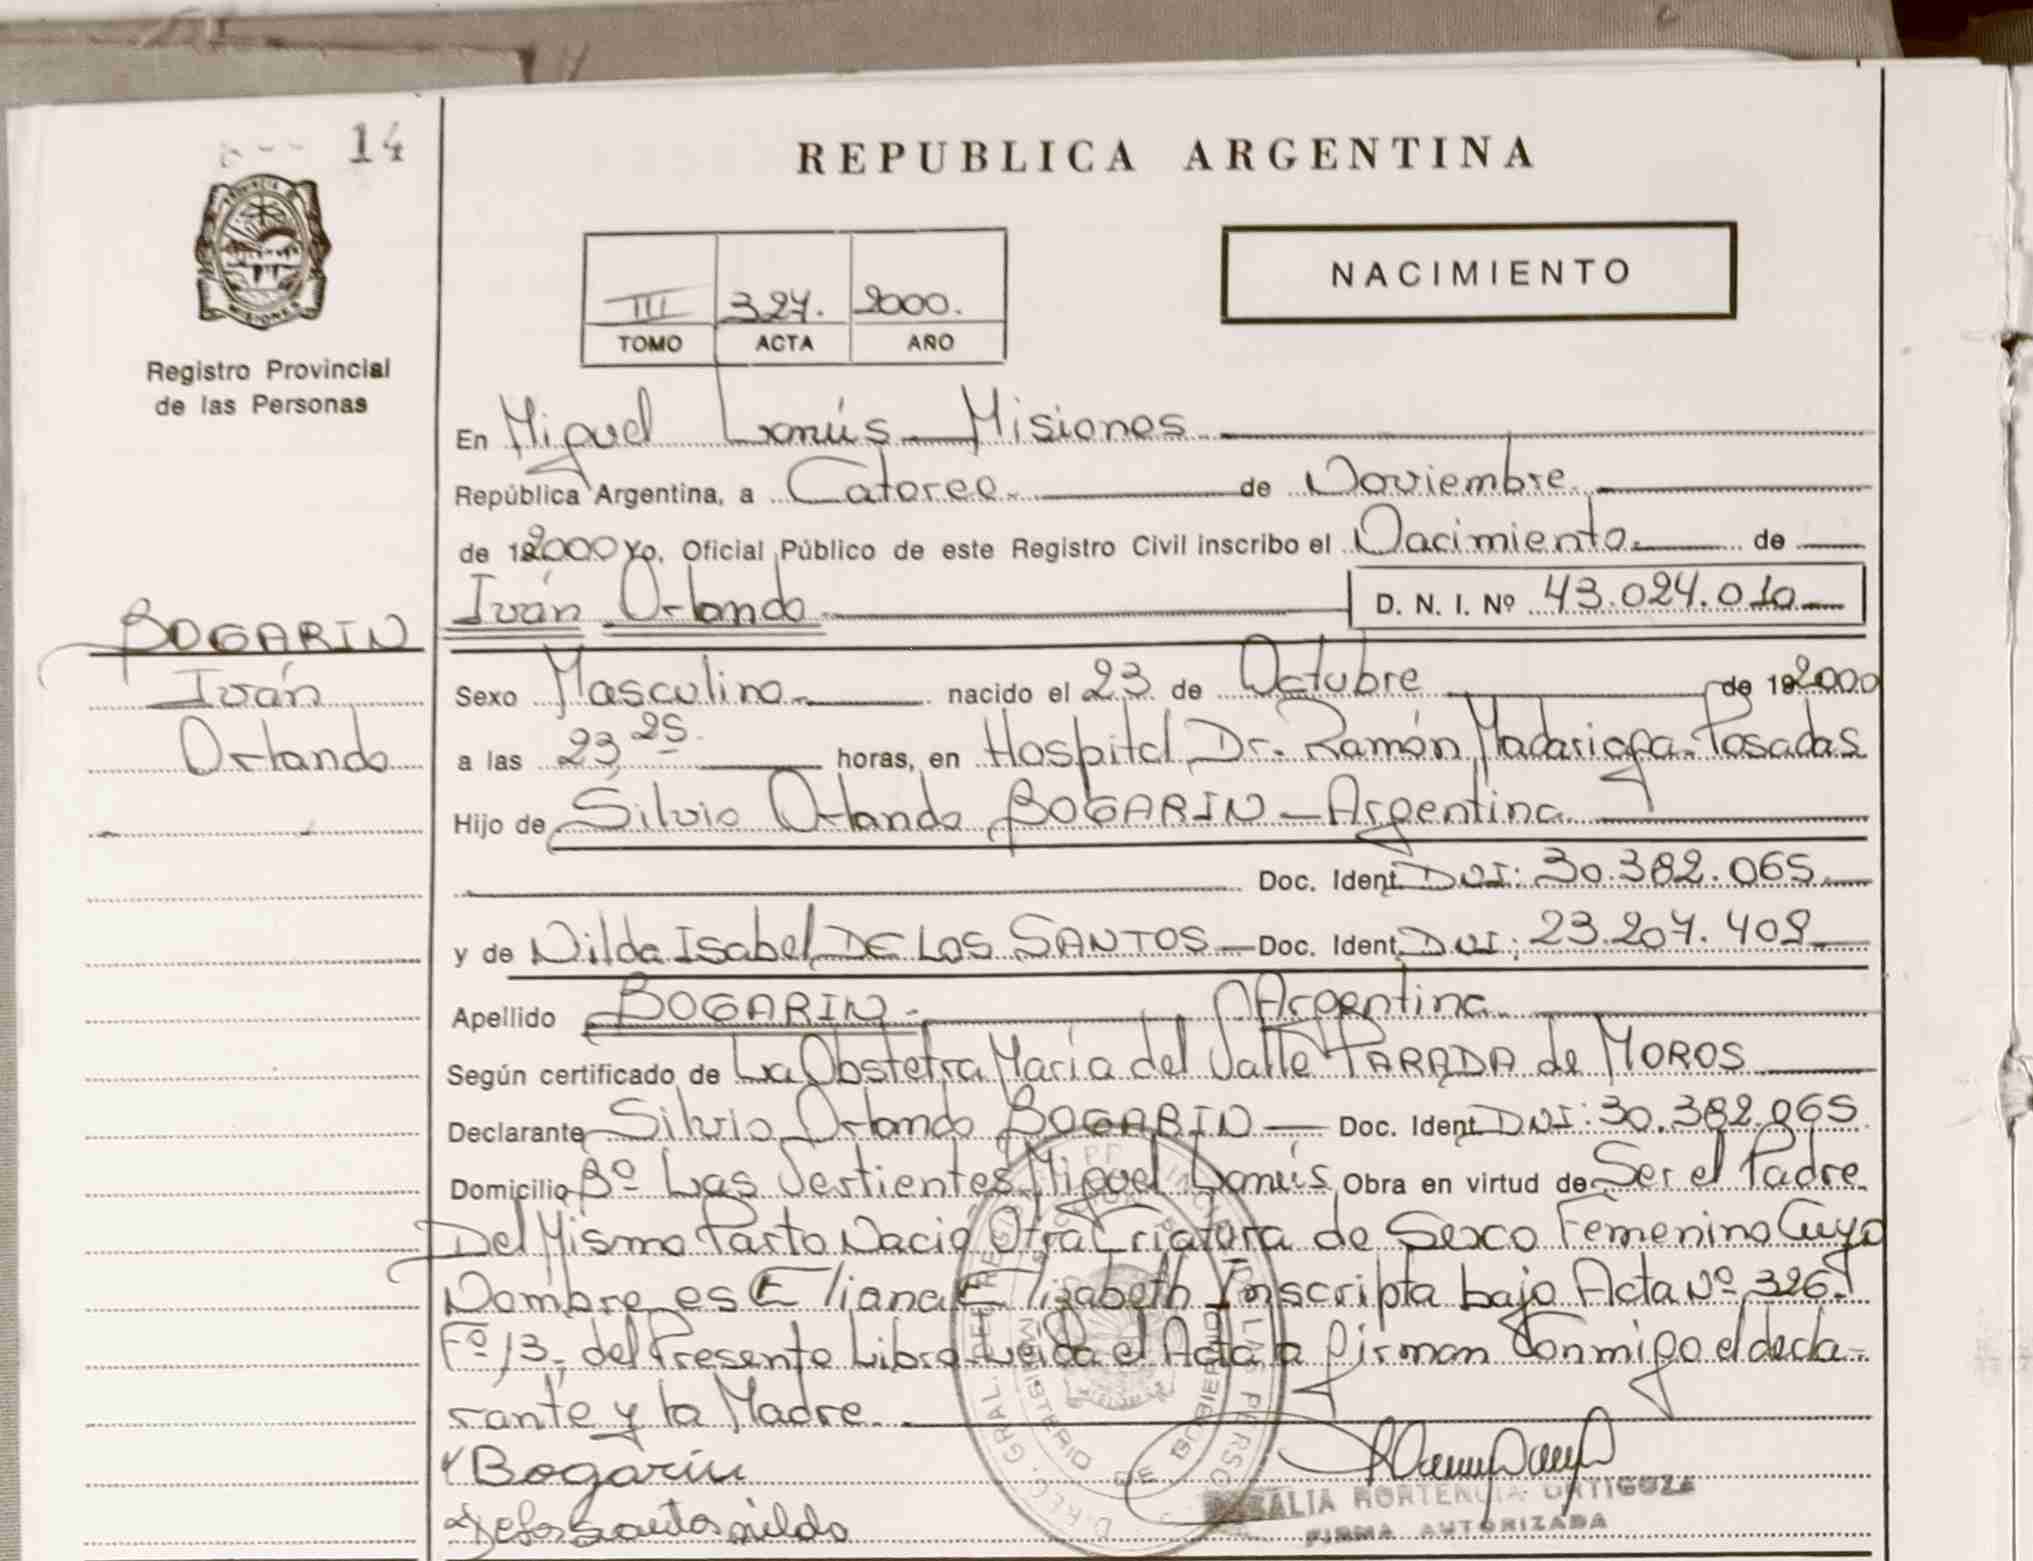 14
REPUBLICA ARGENTINA
NACIMIENTO
III 327. 2000.
TOMO ACTA AÑO
PROVINCIA DE
MISIONES
Registro Provincial
de las Personas
En Miguel Lanús - Misiones
República Argentina, a Catorce de Noviembre
de 192000 Yo, Oficial Público de este Registro Civil inscribo el Nacimiento de
Iván Orlando D. N. I. Nº 43.024.010
BOGARIN
Iván
Orlando
Sexo Masculino nacido el 23 de Octubre de 192000
a las 23,25 horas, en Hospital Dr. Ramón Madariaga - Posadas
Hijo de Silvio Orlando BOGARIN - Argentina
Doc. Ident. DNI: 30.382.065
y de Nilda Isabel DE LOS SANTOS - Doc. Ident. DNI: 23.207.409
Apellido BOGARIN - Argentina
Según certificado de La Obstetra María del Valle PARADA de MOROS
Declarante Silvio Orlando BOGARIN - Doc. Ident. DNI: 30.382.065
Domicilio Bº Las Vertientes Miguel Lanús Obra en virtud de Ser el Padre
Del Mismo Parto Nació Otra Criatura de Sexo Femenino Cuyo
Nombre es Eliana Elizabeth Inscripta bajo Acta Nº 326 -
Fº 13, del Presente Libro. Leída el Acta, la firman Conmigo el decla-
rante y la Madre.
Bogarin
De los santos nilda
ALIA HORTENCIA ORTIGOZA
FIRMA AUTORIZADA